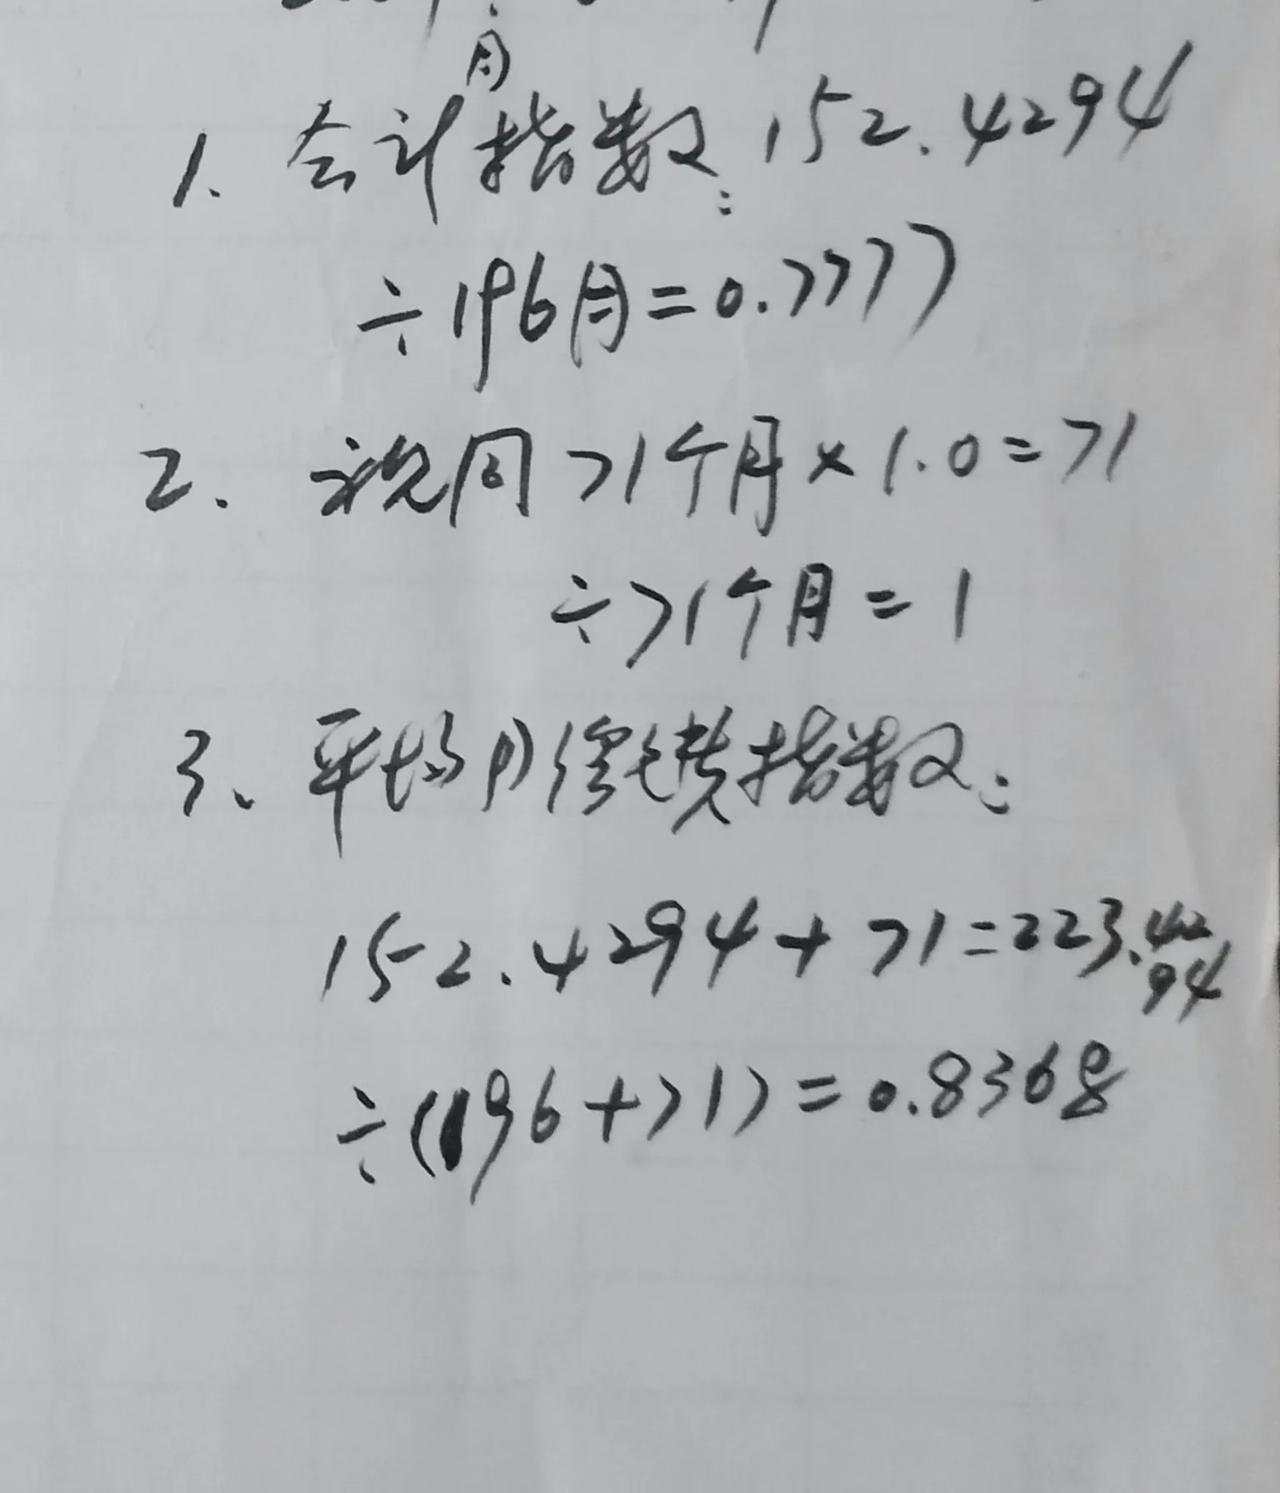 1. 合计月指数: 152.4294
÷196月=0.7777
2. 视同71个月×1.0=71
÷71个月=1
3、平均月缴费指数:
152.4294+71=223.4294
÷(196+71)=0.8368